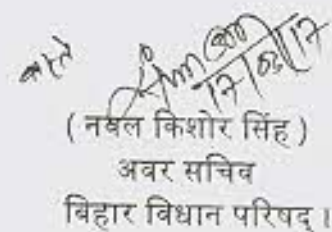 17/02/17
( नवल किशोर सिंह )
अवर सचिव
बिहार विधान परिषद् ।